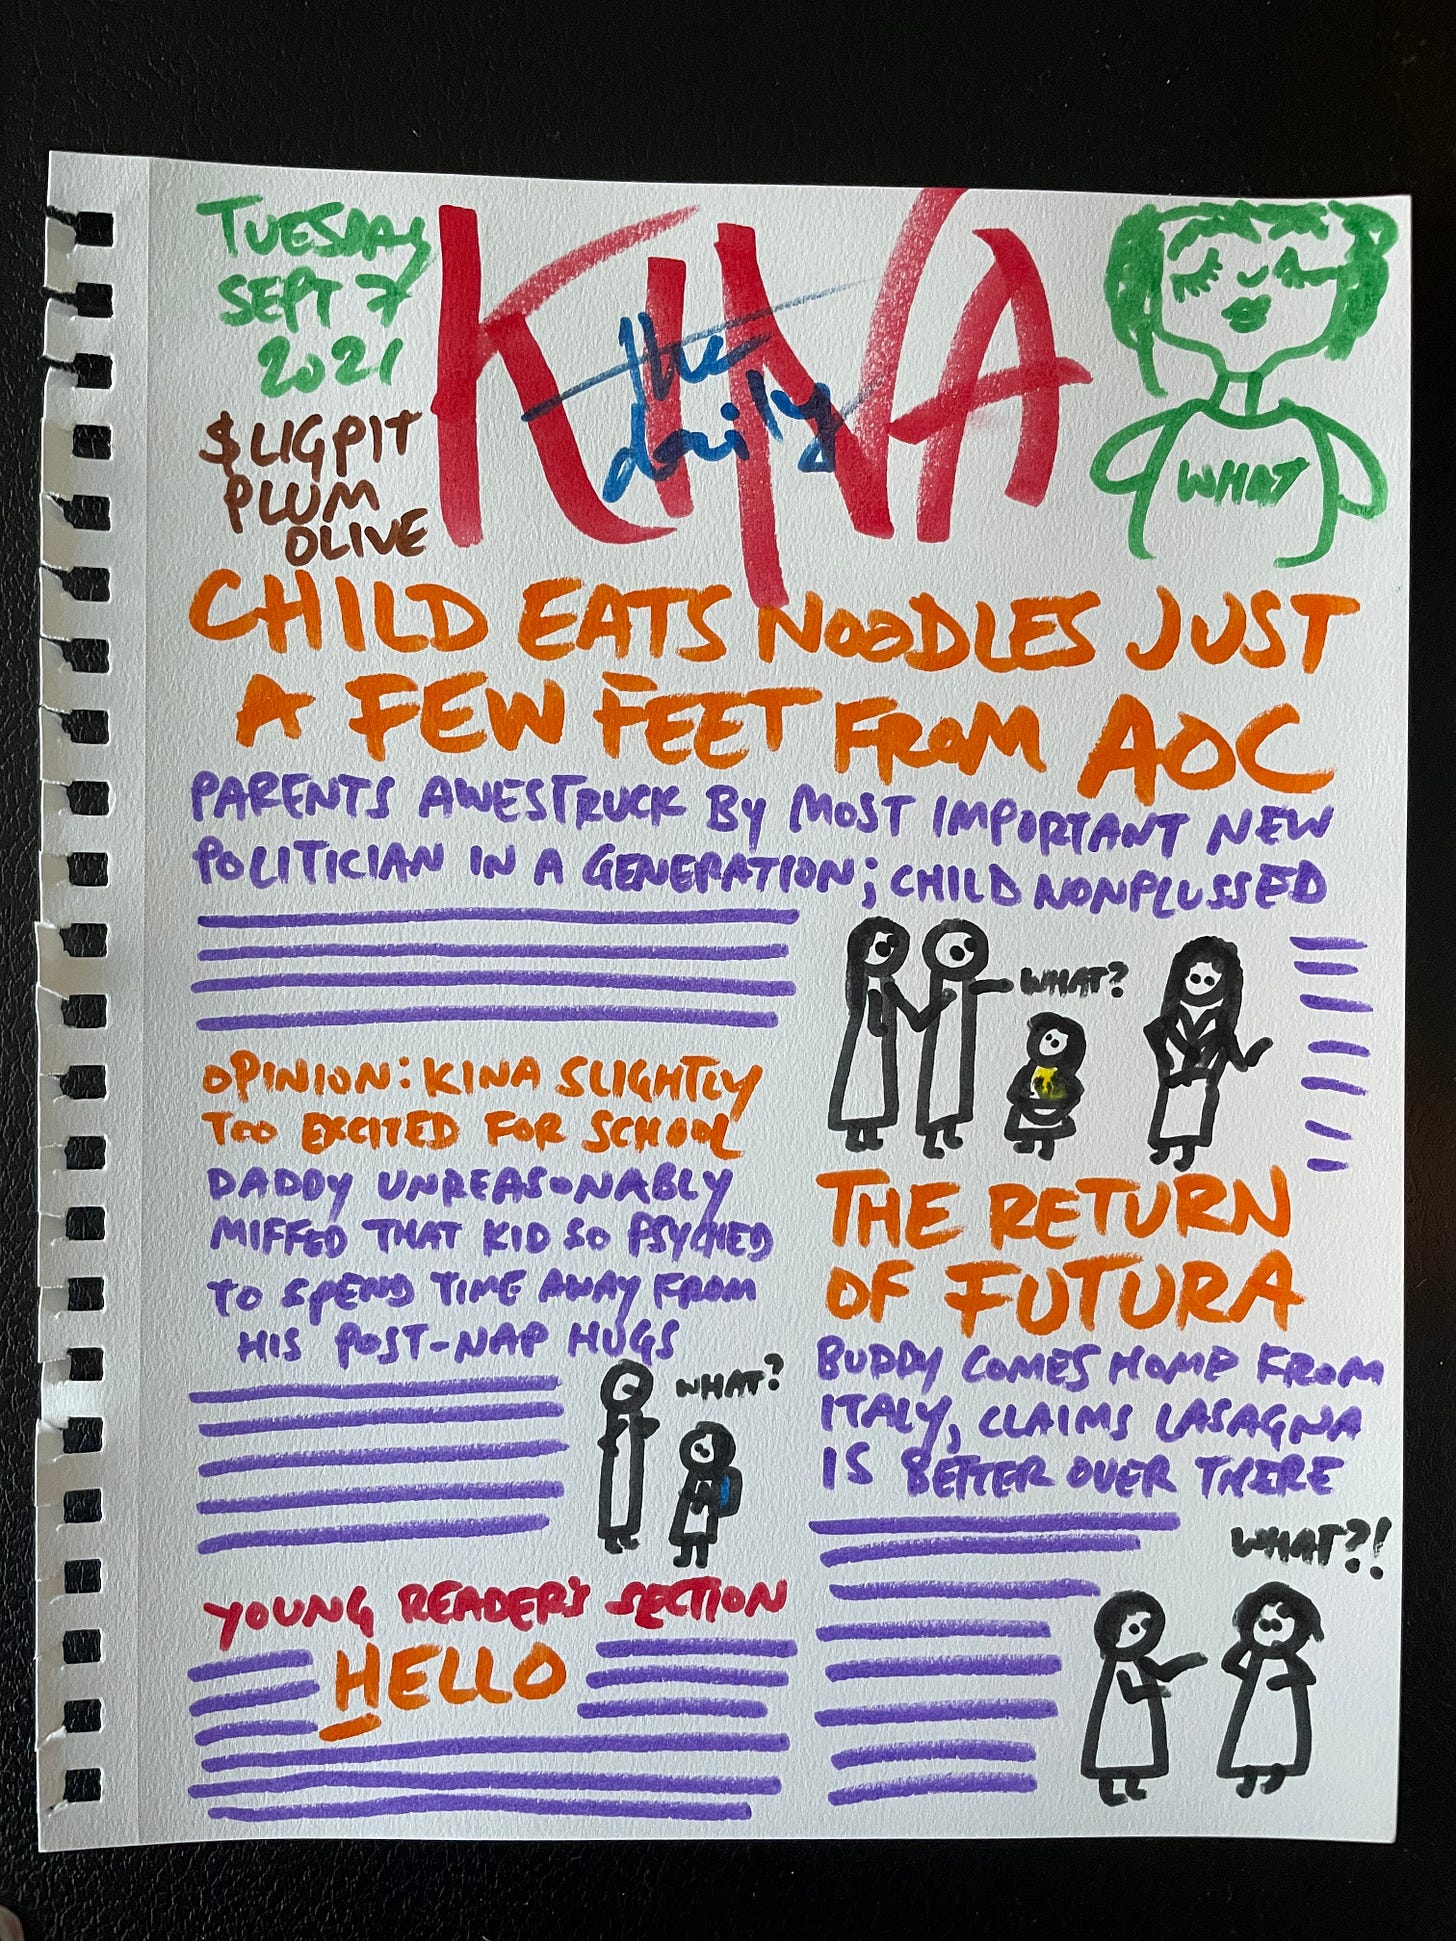 TUESDAY
SEPT 7
2021
$LIGPIT
PLUM
OLIVE
the
daily
KINA
WHAT
CHILD EATS NOODLES JUST
A FEW FEET FROM AOC
PARENTS AWESTRUCK BY MOST IMPORTANT NEW
POLITICIAN IN A GENERATION; CHILD NONPLUSSED
WHAT?
OPINION: KINA SLIGHTLY
TOO EXCITED FOR SCHOOL
DADDY UNREASONABLY
MIFFED THAT KID SO PSYCHED
TO SPEND TIME AWAY FROM
HIS POST-NAP HUGS
WHAT?
THE RETURN
OF FUTURA
BUDDY COMES HOME FROM
ITALY, CLAIMS LASAGNA
IS BETTER OVER THERE
WHAT?!
YOUNG READER'S SECTION
HELLO